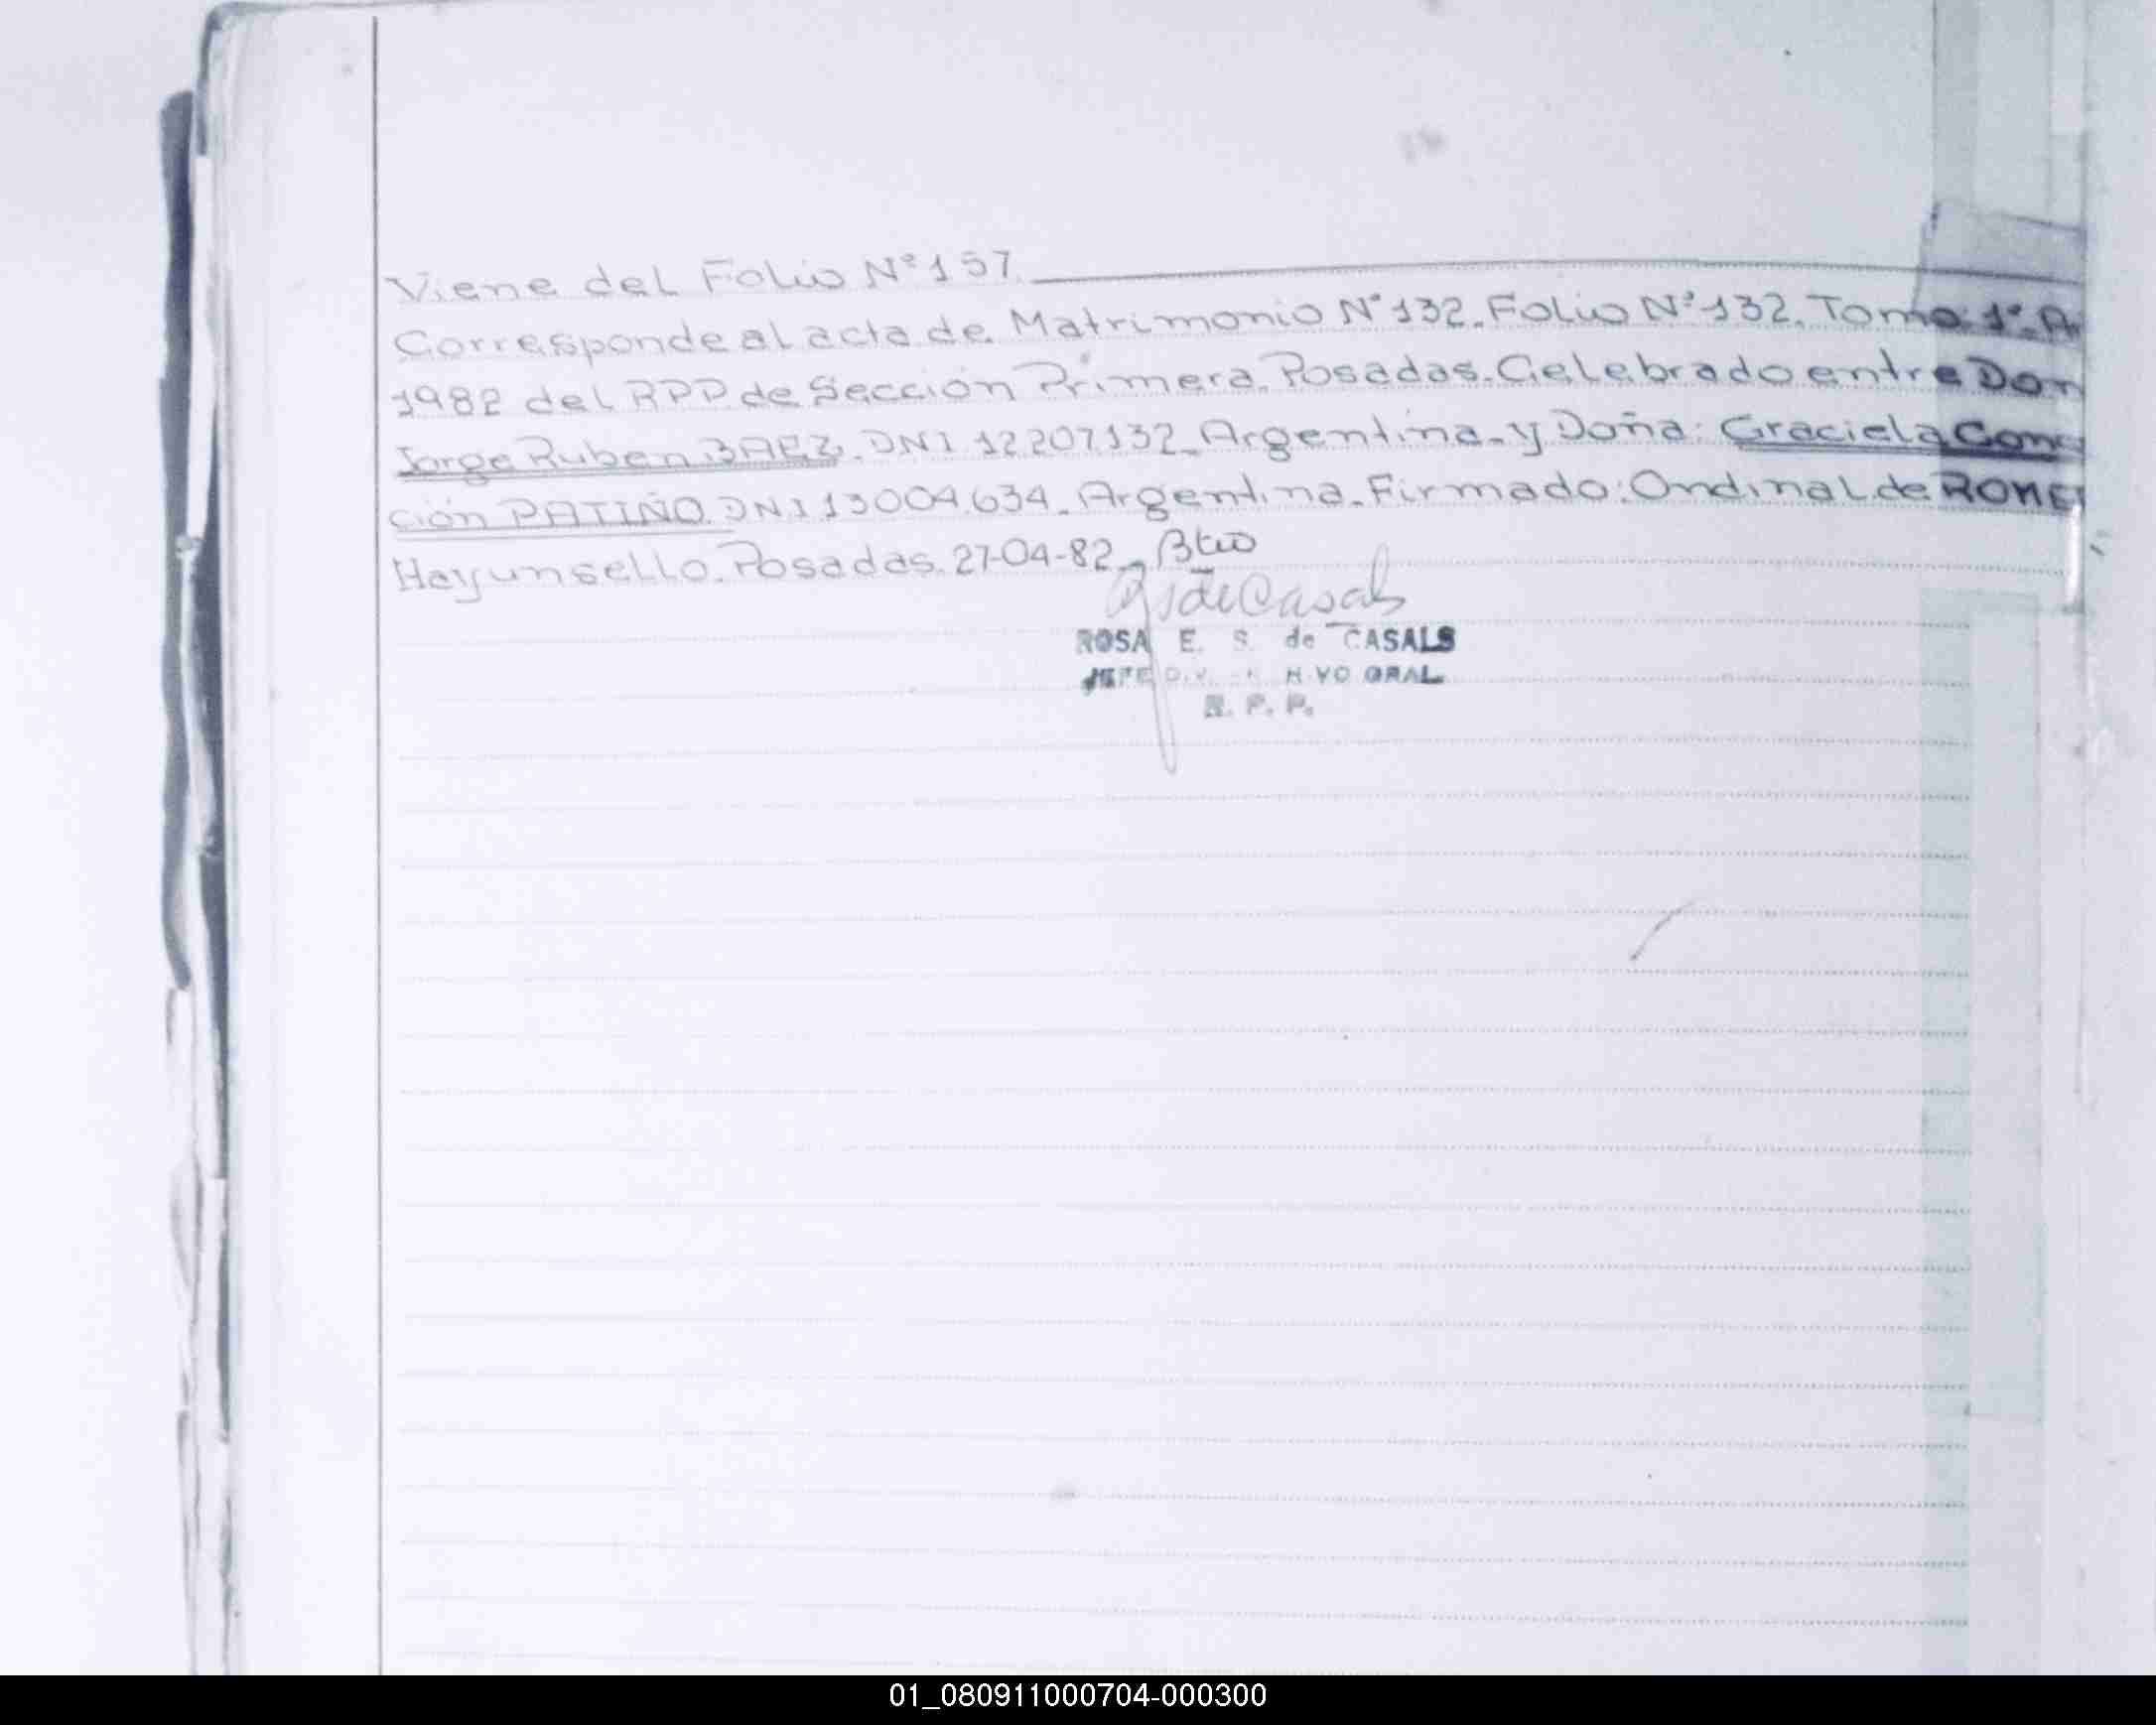 Viene del Folio Nº 157.
Corresponde al acta de Matrimonio Nº 132. Folio Nº 132. Tomo 1º. A
1982 del RPP de Sección Primera. Posadas. Celebrado entre Don
Jorge Ruben BAEZ. DNI 12207132. Argentina. y Doña: Graciela Conc
ción PATIÑO. DNI 13004634. Argentina. Firmado: Ondina L. de ROME
Hay un sello. Posadas. 27-04-82.
de Casals
ROSA E. S. de CASALS
JEFE DIV. GRAL
R. P. P.
01_080911000704-000300